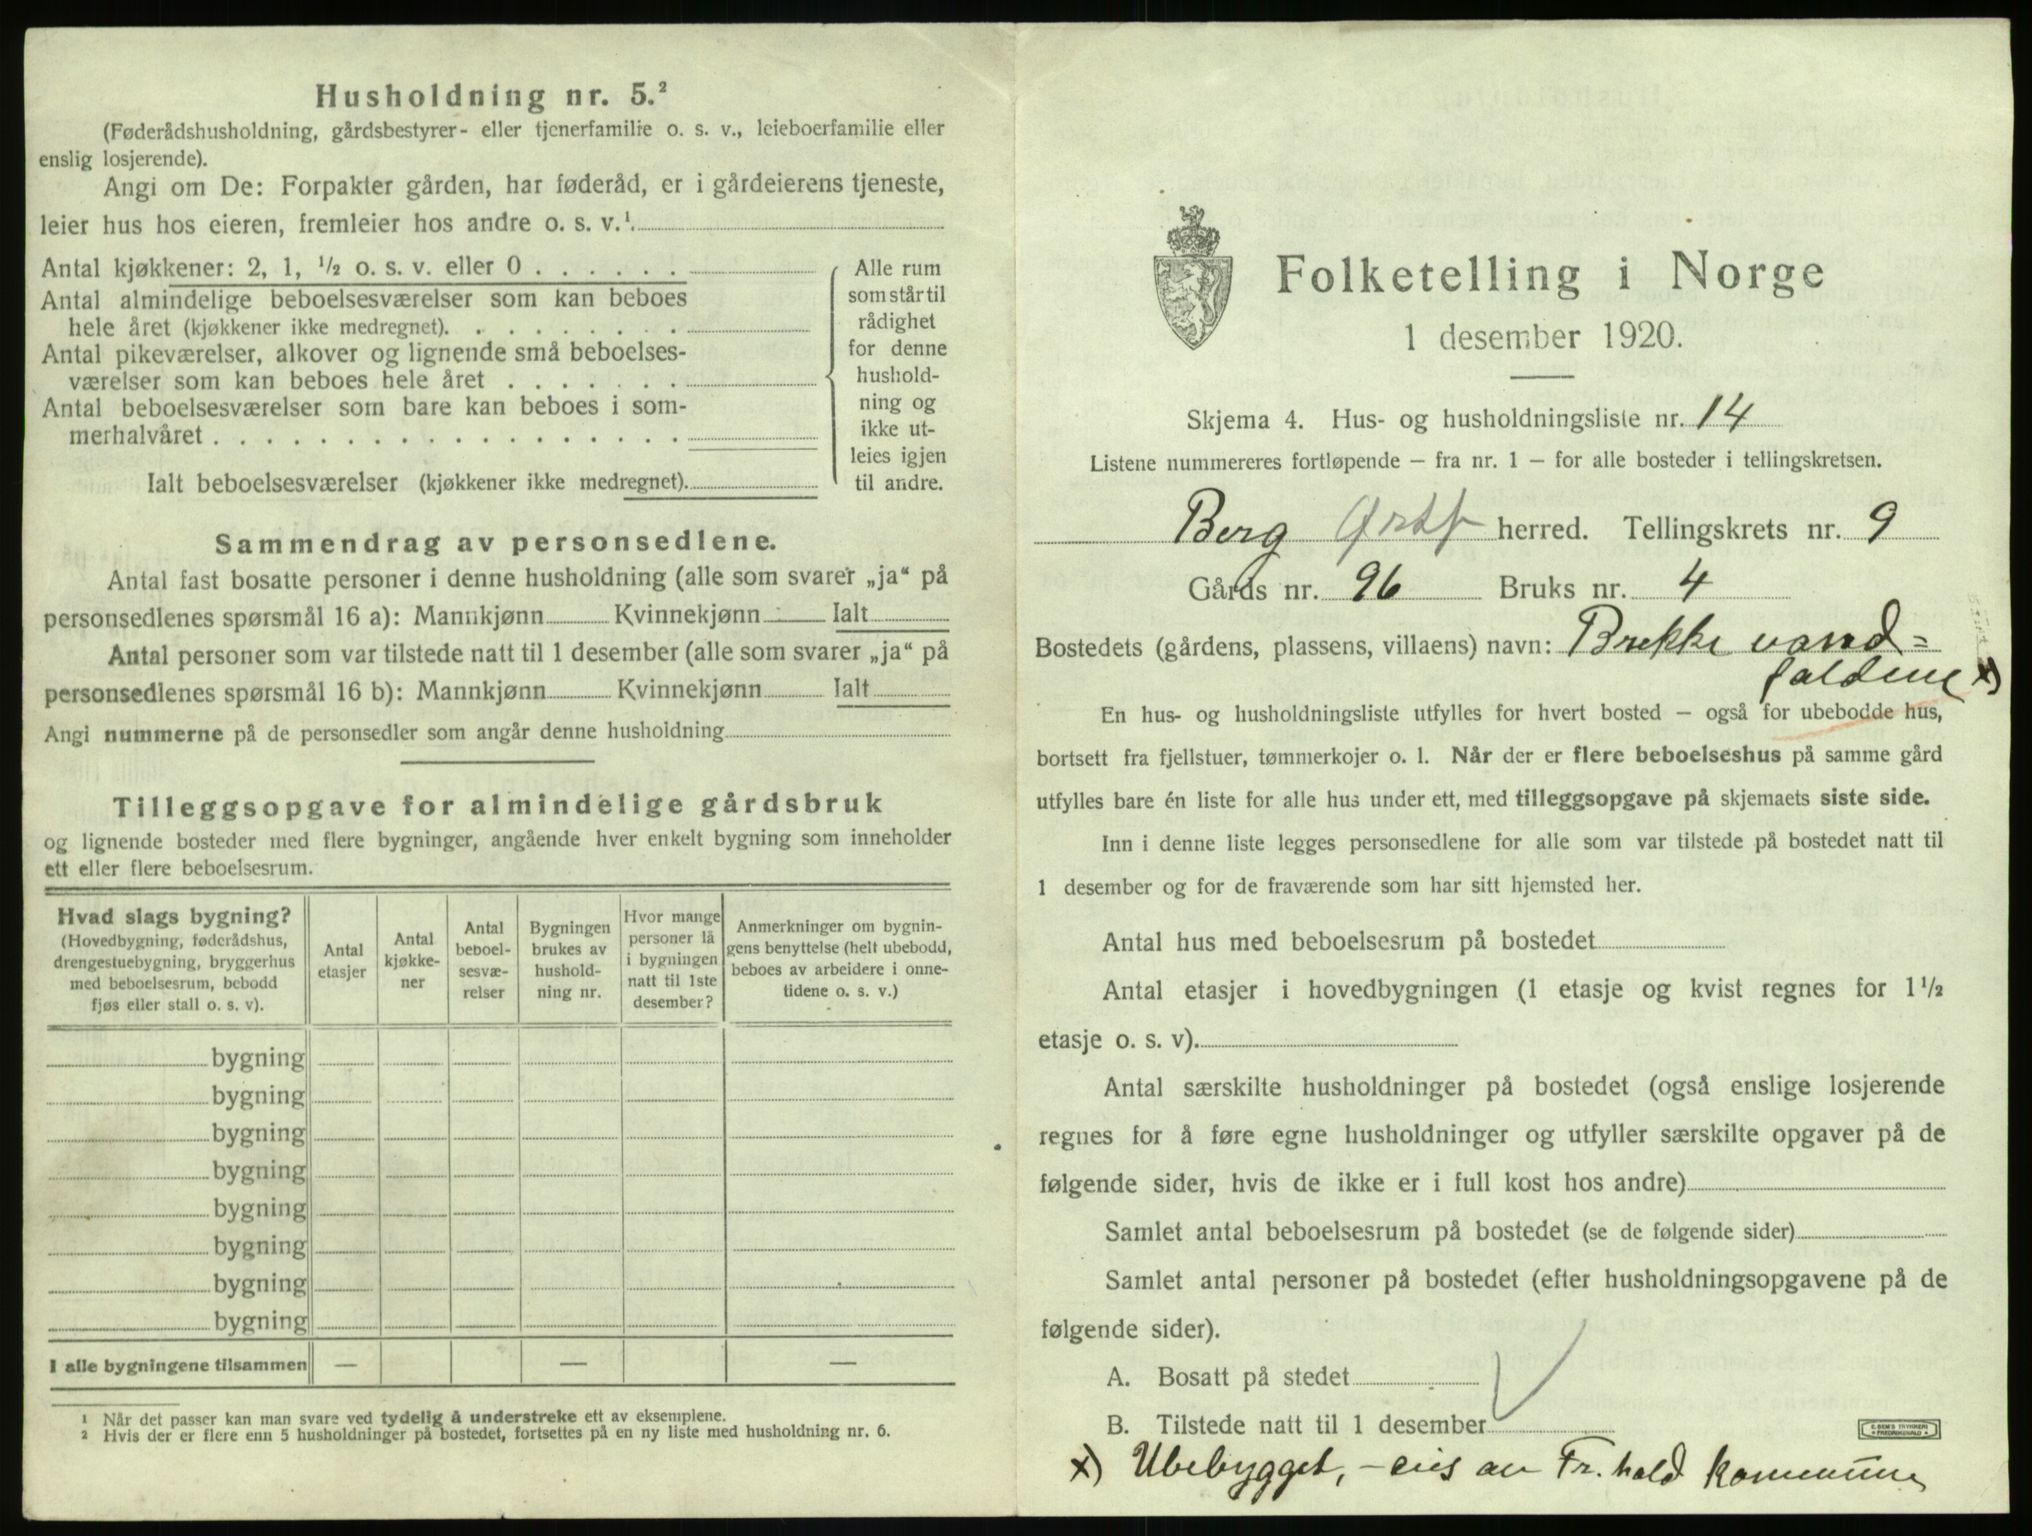 Husholdning nr. 5.²
(Føderådshusholdning, gårdsbestyrer- eller tjenerfamilie o. s. v., leieboerfamilie eller
enslig losjerende).
Angi om De: Forpakter gården, har føderåd, er i gårdeierens tjeneste,
leier hus hos eieren, fremleier hos andre o. s. v.¹
Antal kjøkkener: 2, 1, ½ o. s. v. eller 0 . . . . . .
Antal almindelige beboelsesværelser som kan beboes
hele året (kjøkkener ikke medregnet). . . . . . . . .
Antal pikeværelser, alkover og lignende små beboelses-
værelser som kan beboes hele året . . . . . . .
Antal beboelsesværelser som bare kan beboes i som-
merhalvåret . . . . . . . . . . . . . . . . . .
Ialt beboelsesværelser (kjøkkener ikke medregnet).
Alle rum
som står til
rådighet
for denne
hushold-
ning og
ikke ut-
leies igjen
til andre.
Sammendrag av personsedlene.
Antal fast bosatte personer i denne husholdning (alle som svarer „ja“ på
personsedlenes spørsmål 16 a): Mannkjønn Kvinnekjønn Ialt
Antal personer som var tilstede natt til 1 desember (alle som svarer „ja“ på
personsedlenes spørsmål 16 b): Mannkjønn Kvinnekjønn Ialt
Angi nummerne på de personsedler som angår denne husholdning
Tilleggsopgave for almindelige gårdsbruk
og lignende bosteder med flere bygninger, angående hver enkelt bygning som inneholder
ett eller flere beboelsesrum.
Hvad slags bygning?
(Hovedbygning, føderådshus,
drengestuebygning, bryggerhus
med beboelsesrum, bebodd
fjøs eller stall o. s. v).
Antal
etasjer
Antal
kjøkke-
ner
Antal
beboel-
sesvæ-
relser
Bygningen
brukes av
hushold-
ning nr.
Hvor mange
personer lå
i bygningen
natt til 1ste
desember?
Anmerkninger om bygnin-
gens benyttelse (helt ubebodd,
beboes av arbeidere i onne-
tidene o. s. v.)
bygning
bygning
bygning
bygning
bygning
bygning
bygning
bygning
I alle bygningene tilsammen — — —
¹ Når det passer kan man svare ved tydelig å understreke ett av eksemplene.
² Hvis der er flere enn 5 husholdninger på bostedet, fortsettes på en ny liste med husholdning nr. 6.
Folketelling i Norge
1 desember 1920.
Skjema 4. Hus- og husholdningsliste nr. 14
Listene nummereres fortløpende — fra nr. 1 — for alle bosteder i tellingskretsen.
Berg Østf herred. Tellingskrets nr. 9
Gårds nr. 96 Bruks nr. 4
Bostedets (gårdens, plassens, villaens) navn: Brekke vand=
faldene x)
En hus- og husholdningsliste utfylles for hvert bosted — også for ubebodde hus,
bortsett fra fjellstuer, tømmerkojer o. l. Når der er flere beboelseshus på samme gård
utfylles bare én liste for alle hus under ett, med tilleggsopgave på skjemaets siste side.
Inn i denne liste legges personsedlene for alle som var tilstede på bostedet natt til
1 desember og for de fraværende som har sitt hjemsted her.
Antal hus med beboelsesrum på bostedet
Antal etasjer i hovedbygningen (1 etasje og kvist regnes for 1½
etasje o. s. v).
Antal særskilte husholdninger på bostedet (også enslige losjerende
regnes for å føre egne husholdninger og utfyller særskilte opgaver på de
følgende sider, hvis de ikke er i full kost hos andre)
Samlet antal beboelsesrum på bostedet (se de følgende sider)
Samlet antal personer på bostedet (efter husholdningsopgavene på de
følgende sider).
A. Bosatt på stedet
B. Tilstede natt til 1 desember
x) Ubebygget, — eies av Fr.hald kommune